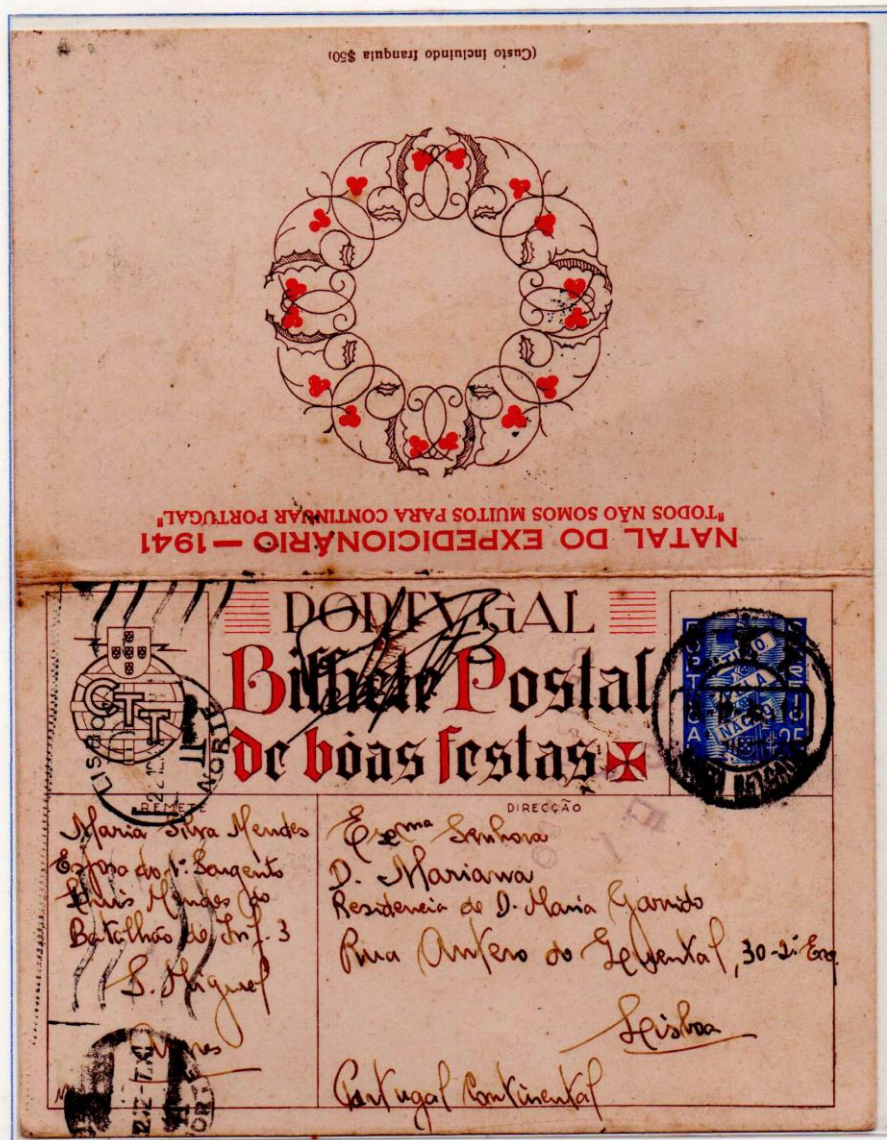 (Custo incluindo franquia $50)
NATAL DO EXPEDICIONÁRIO — 1941
"TODOS NÃO SOMOS MUITOS PARA CONTINUAR PORTUGAL"
PORTVGAL
Bilhete Postal
de bôas festas
CTT
LISBOA
NORTE
TUDO
PELA
NAÇÃO
25
REMETE
Maria Silva Mendes
Esposa do 1º Sargento
Luis Mendes do
Batalhão de Inf. 3
S. Miguel
DIRECÇÃO
Exᵐᵃ Senhora
D. Marianna
Residencia de D. Maria Garrido
Rua Antero do Quental, 30-2º Esq.
Lisboa
Portugal Continental